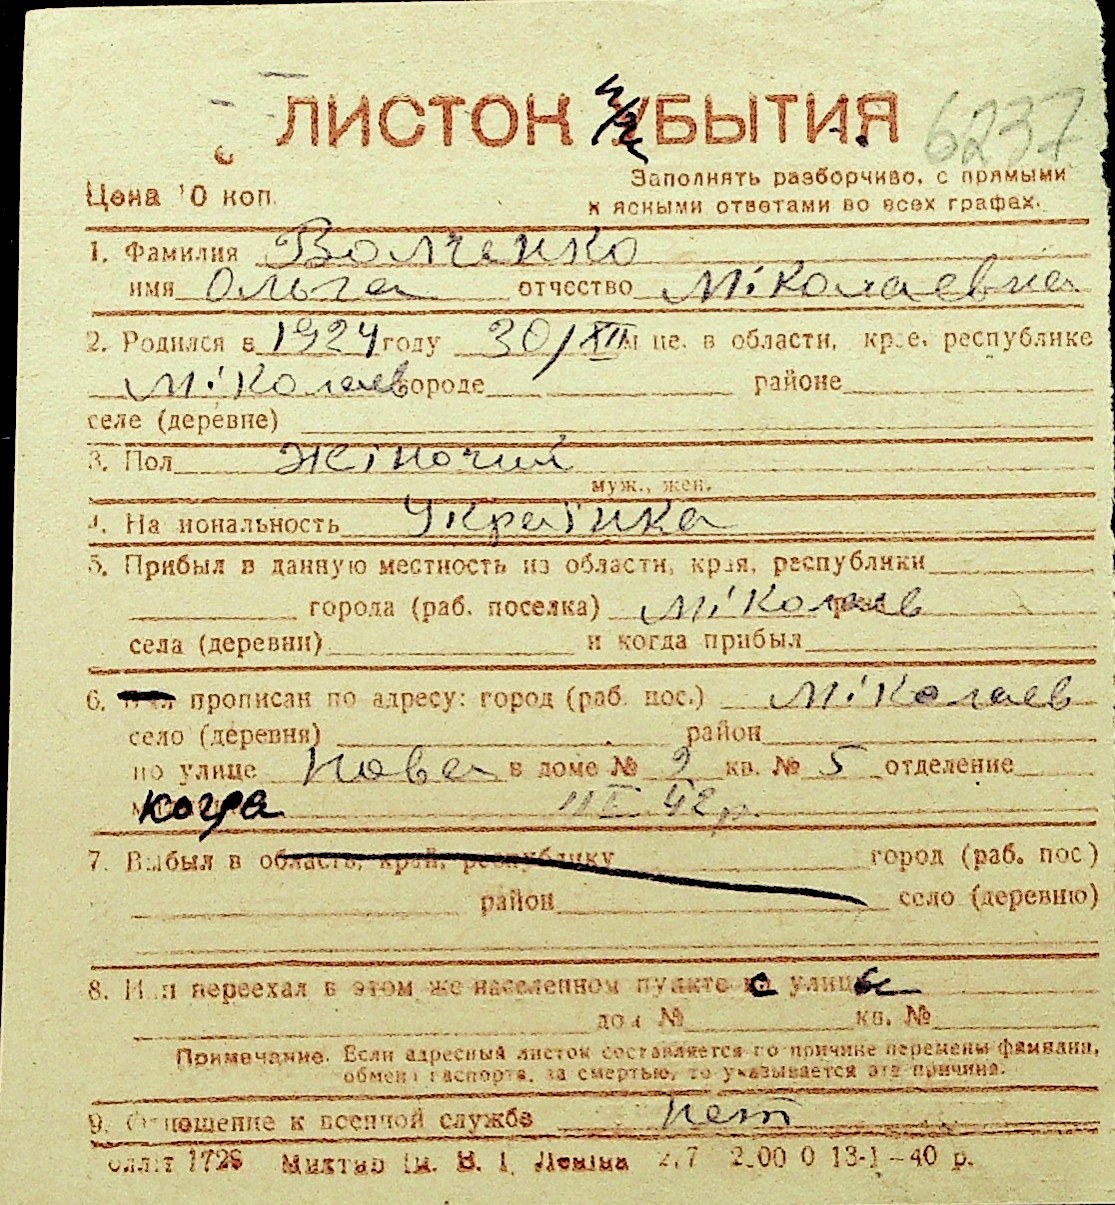 ЛИСТОК УБЫТИЯ 6237
Заполнять разборчиво, с прямыми
Цена 10 коп.
и ясными ответами во всех графах.
1. Фамилия Волченко
имя Ольга отчество Міколаевна
2. Родился в 1924 году 30/XII м це. в области, крае, республике
Міколаев городе районе
селе (деревне)
3. Пол жіночий
муж., жен.
4. На иональность Українка
5. Прибыл в данную местность из области, края, республики
города (раб. поселка) Міколаев
села (деревни) и когда прибыл
6. прописан по адресу: город (раб. пос.) Міколаев
село (деревня) район
по улице Нова в доме № 9 кв. № 5 отделение
когда 11 I 42 р.
7. Выбыл в область, край, республику город (раб. пос)
район село (деревню)
8. Или переехал в этом же населенном пункте с улицы
дом № кв. №
Примечание. Если адресный листок составляется по причине перемены фамилии,
обмена паспорта, за смертью, то указывается эта причина.
9. Отношение к военной службе нет
1728 ім. В. І. Леніна 2.00 0 13-I-40 р.